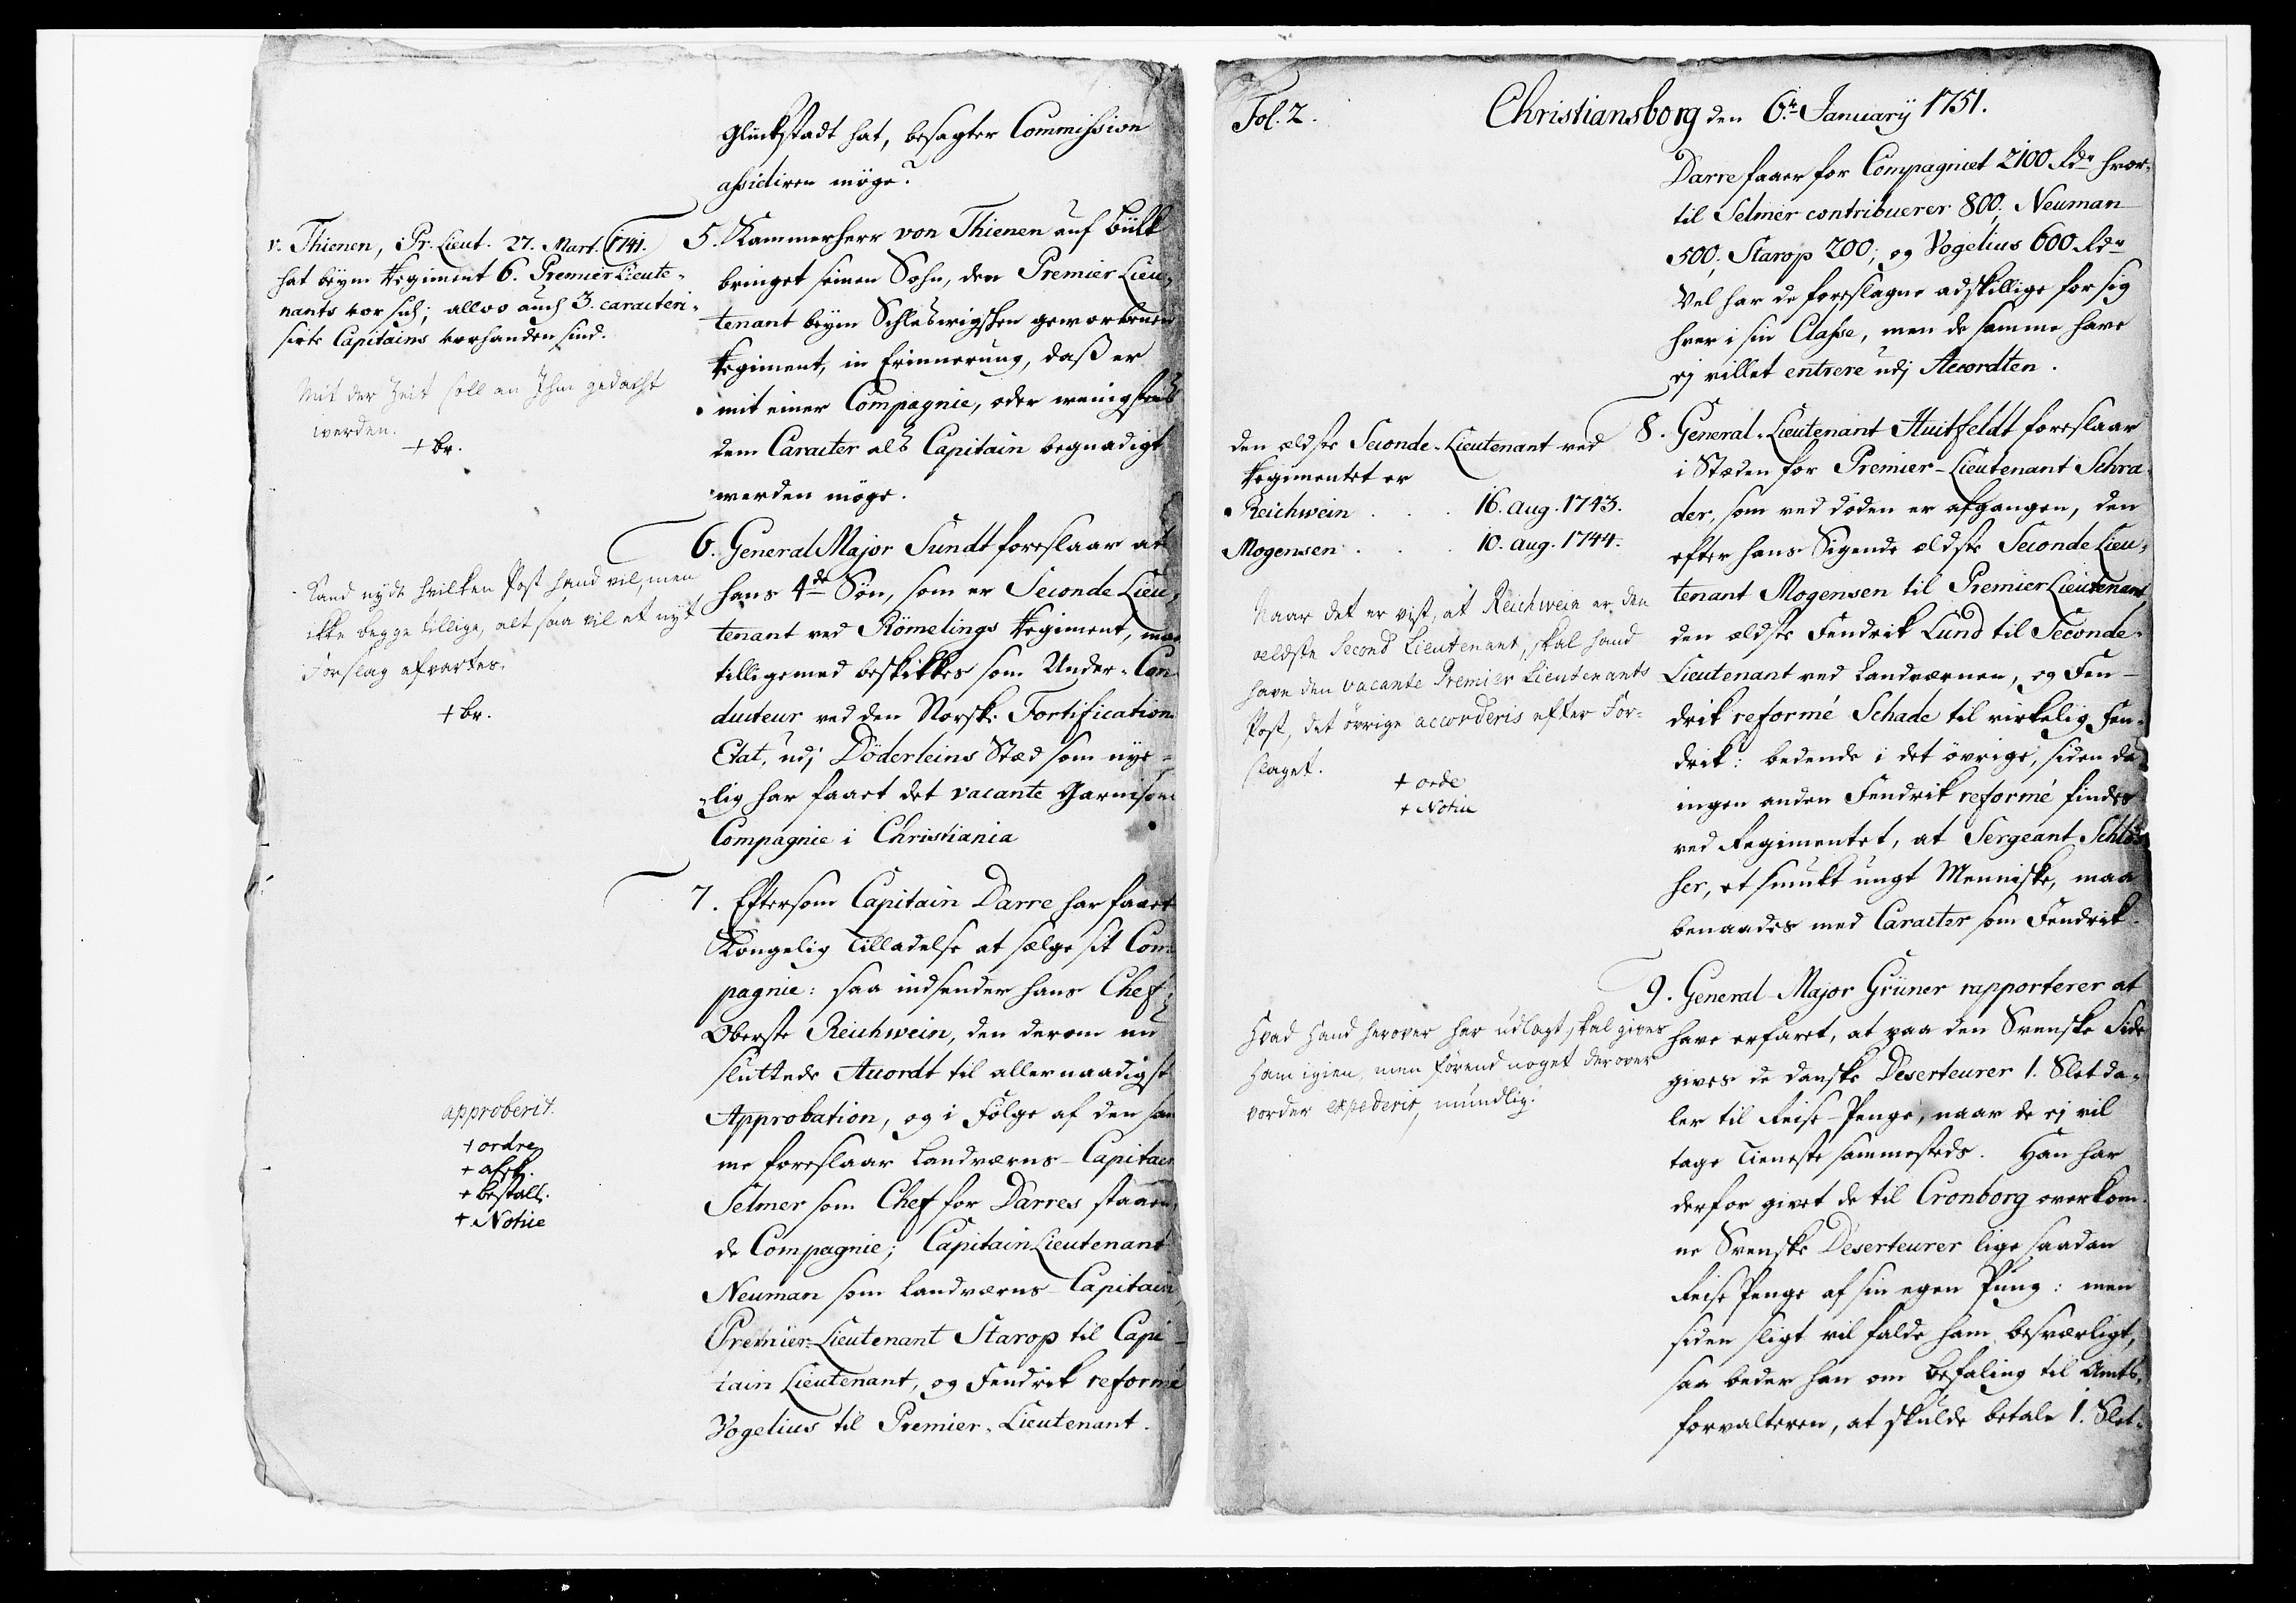 Glückstadt hat, besagter Commission
assidiren möge?
v. Thienen, Pr. Lieut. 27. Mart. 1741.
hat beym Regiment 6. Premier Lieute-
nants vor sich; allwo auch 3. caracteri-
sirte Capitains vorhanden sind.
Mit der Zeit soll an Ihm gedacht
werden.
+ br.
5. Kammerherr von Thienen auf Bülk
bringet seinen Sohn, den Premier Lieu-
tenant beym Schleswigschen geworbenen
Regiment, in Erinnerung, daß er
mit einer Compagnie, oder wenigstens
dem Caracter als Capitain begnadigt
werden möge.
Hand nyde hvilken Post hand vil, men
ikke begge tillige, alt saa vil et nyt
Forslag afvartes.
+ br.
6. General Major Sundt foreslaar at
hans 4de Sön, som er Seconde Lieu-
tenant ved Römelings Regiment, maa
tilligemed beskikkes som Under-Con-
ducteur ved den Norske Fortification
Etat, udi Döderleins Stæd som nye-
lig har faaet det vacante Garnison
Compagnie i Christiania
approberit.
+ ordre
+ afsk.
+ bestall.
+ Notice
7. Eftersom Capitain Darre har faaet
Kongelig Tilladelse at sælge sit Com-
pagnie: saa indsender hans Chef,
Oberste Reichwein, den derom nu
sluttede Accordt til allernaadigst
Approbation, og i Fölge af den sam
me foreslaar Landværns-Capitain
Selmer som Chef for Darres staaen-
de Compagnie; Capitain Lieutenant
Neuman som Landværns-Capitain,
Premier-Lieutenant Starop til Capi-
tain Lieutenant, og Fendrik reformé
Vogelius til Premier-Lieutenant.
Fol. 2.
Christiansborg den 6te January 1751.
Darre faaer for Compagniet 2100 Rdr hvor-
til Selmer contribuerer 800, Neuman
500, Starop 200, og Vogelius 600 Rdr
Vel har de foreslagne adskillige for sig
hver i sin Classe, men de samme have
ej villet entrere udj Accordten.
den ældste Seconde-Lieutenant ved
Regimentet er
Reichwein . . . 16. aug. 1743.
Mogensen . . . 10. aug. 1744.
Naar det er vist, at Reichwein er den
ældste Second Lieutenant, skal hand
have den vacante Premier Lieutenants
Post, det övrige accorderis efter For-
slaget.
+ orde
+ Notice
8. General-Lieutenant Huitfeldt foreslaar
i Stæden for Premier-Lieutenant Schra-
der, som ved döden er afgangen, den
efter hans Sigende ældste Seconde Lieu-
tenant Mogensen til Premier Lieutenant,
den ældste Fendrik Lund til Seconde-
Lieutenant ved Landværnen, og Fen-
drik reformé Schade til virkelig Fen-
drik: bedende i det övrige, siden da
ingen anden Fendrik reformé findes
ved Regimentet, at Sergeant Schlös-
ser, et smukt ungt Menniske, maa
benaades med Caracter som Fendrik.
Hvad Hand herover har udlagt, skal gives
Ham igien, men förend noget derover
vorder expederit, mundlig.
9. General-Major Grüner rapporterer at
have erfaret, at paa den Svenske Side
gives de danske Deserteurer 1. Sletda-
ler til Reise-Penge, naar de ej vil
tage Tieneste sammesteds. Han har
derfor givet de til Cronborg overkom-
ne Svenske Deserteurer lige saadan
Reise Penge af sin egen Pung: men
siden sligt vil falde ham besværligt,
saa beder han om befaling til Amts-
forvalteren, at skulde betale 1. Slet-